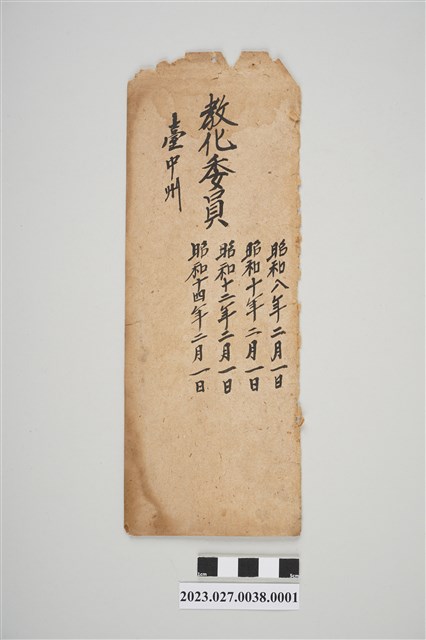 教化委員
臺中州
昭和八年二月一日
昭和十一年二月一日
昭和十二年二月一日
昭和十四年二月一日
1cm
5cm
2023.027.0038.0001